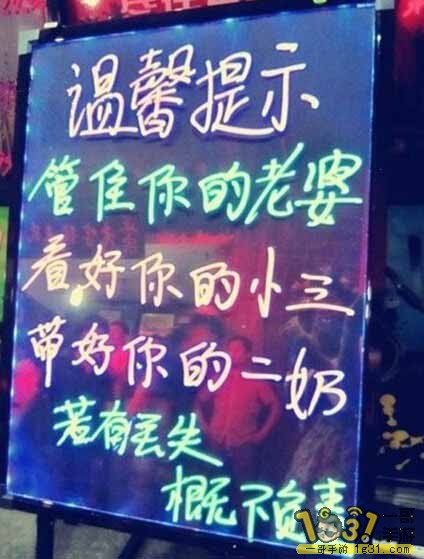 温馨提示
管住你的老婆
看好你的小三
带好你的二奶
若有丢失
概不负责
一哥手游 1g31.com